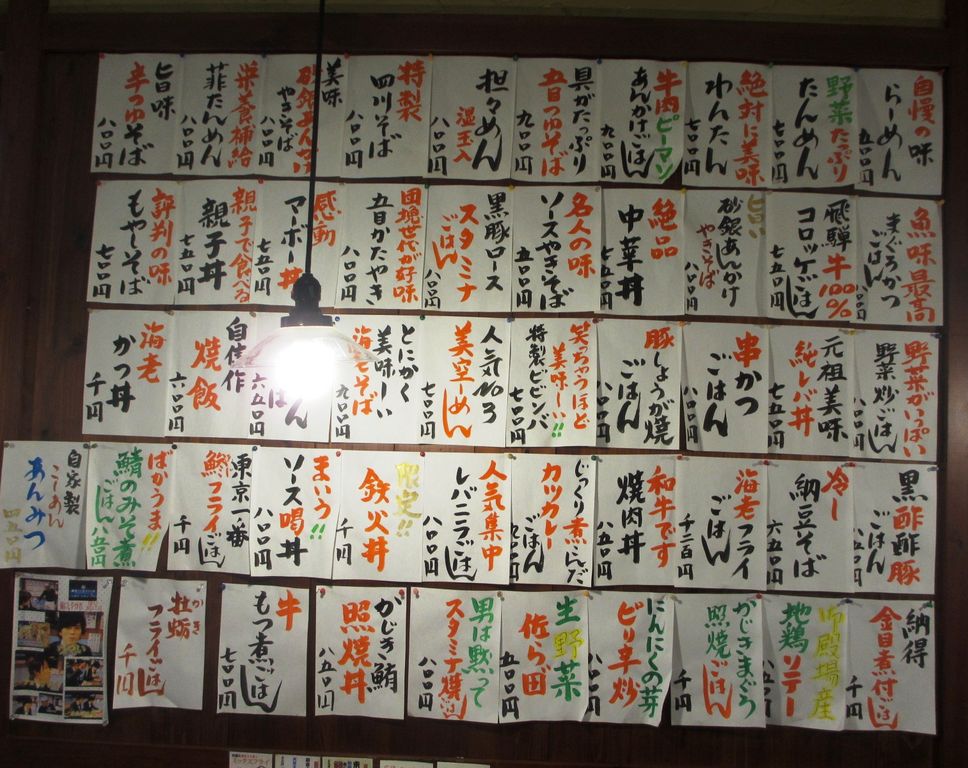 自慢の味
らーめん
五〇〇円
野菜たっぷり
たんめん
七五〇円
絶対に美味
わんたん
七〇〇円
牛肉ピーマン
あんかけごはん
具がたっぷり
五目つゆそば
九〇〇円
担々めん
温玉入
八〇〇円
特製
四川そば
八〇〇円
美味
砂銀あんかけ
やきそば
八〇〇円
栄養補給
菲たんめん
八〇〇円
旨味
辛つゆそば
八〇〇円
魚味最高
まぐろかつ
ごはん
八〇〇円
飛騨牛100%
コロッケごはん
七五〇円
旨い
砂銀あんかけ
やきそば
八〇〇円
絶品
中華丼
七五〇円
名人の味
ソースやきそば
五〇〇円
黒豚ロース
スタミナ
ごはん
八〇〇円
団塊世代が好味
五目かたやき
八〇〇円
感動
マーボー丼
七五〇円
親子で食べる
親子丼
七五〇円
評判の味
もやしそば
七〇〇円
野菜がいっぱい
野菜炒ごはん
八〇〇円
元祖美味
純レバ丼
七五〇円
串かつ
ごはん
八〇〇円
豚しょうが焼
ごはん
八〇〇円
笑っちゃうほど
美味しーい!!
特製ビビンバ
七〇〇円
人気No3
美空しめん
七〇〇円
とにかく
美味しーい
海老そば
九〇〇円
自信作
焼飯
六〇〇円
海老
かつ丼
千円
黒酢酢豚
ごはん
八五〇円
冷し
納豆そば
六五〇円
海老フライ
ごはん
千二百円
和牛です
焼肉丼
八五〇円
じっくり煮こんだ
カツカレー
人気集中
レバニラごはん
八〇〇円
限定!!
鉄火丼
千円
まいう!!
ソース喝丼
八〇〇円
東京一番
鯵フライごはん
千円
ばかうま!!
鯖のみそ煮
ごはん八五〇円
自家製
こしあん
あんみつ
四五〇円
納得
金目煮付ごはん
千円
御殿場産
地鶏ソテー
かじきまぐろ
照焼ごはん
千円
にんにくの芽
ピリ辛炒
八〇〇円
生野菜
佐ら田
五〇〇円
男は黙って
スタミナ焼
八〇〇円
かじき鮪
照焼丼
八五〇円
牛
もつ煮ごはん
七〇〇円
かき
牡蛎
フライごはん
千円